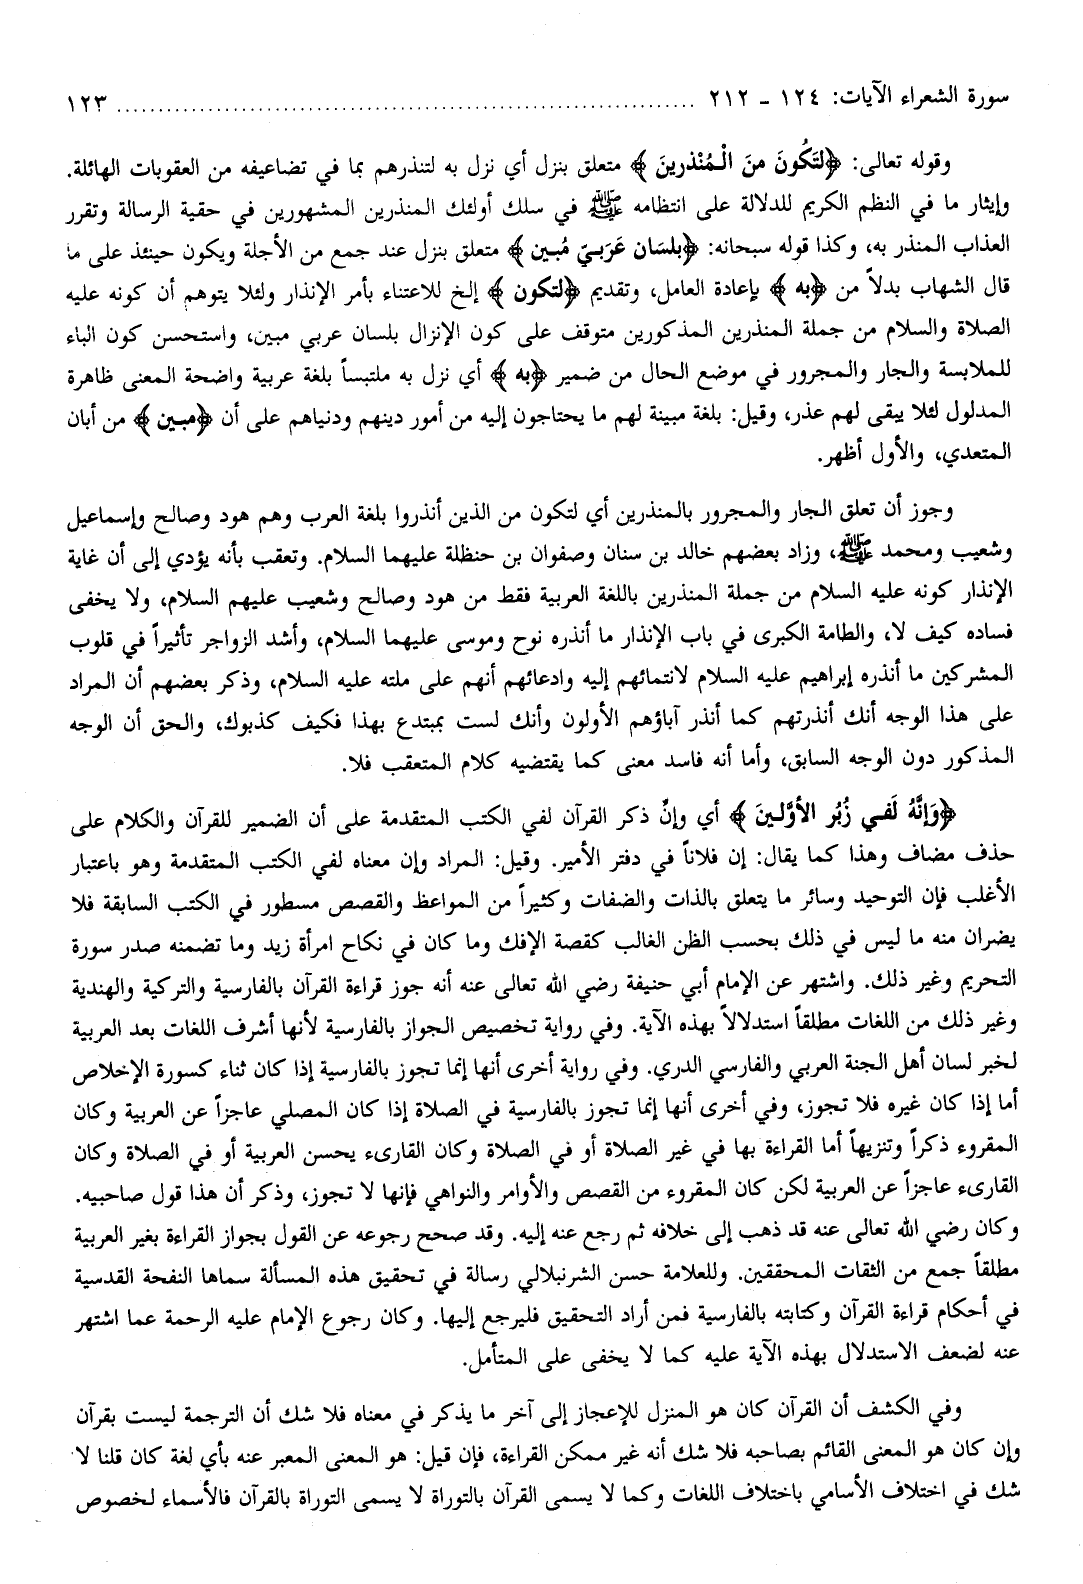 سورة الشعراء الآيات: ١٢٤ ـ ٢١٢ ........................................................................ ١٢٣
وقوله تعالى: ﴿لتَكُونَ منَ الْـمُنْذرينَ﴾ متعلق بنزل أي نزل به لتنذرهم بما في تضاعيفه من العقوبات الهائلة.
وإيثار ما في النظم الكريم للدلالة على انتظامه ﷺ في سلك أولئك المنذرين المشهورين في حقية الرسالة وتقرر
العذاب المنذر به، وكذا قوله سبحانه: ﴿بلسَان عَرَبـيّ مُبـين﴾ متعلق بنزل عند جمع من الأجلة ويكون حينئذ على ما
قال الشهاب بدلاً من ﴿به﴾ بإعادة العامل، وتقديم ﴿لتكون﴾ إلخ للاعتناء بأمر الإنذار ولئلا يتوهم أن كونه عليه
الصلاة والسلام من جملة المنذرين المذكورين متوقف على كون الإنزال بلسان عربي مبين، واستحسن كون الباء
للملابسة والجار والمجرور في موضع الحال من ضمير ﴿به﴾ أي نزل به ملتبساً بلغة عربية واضحة المعنى ظاهرة
المدلول لئلا يبقى لهم عذر، وقيل: بلغة مبينة لهم ما يحتاجون إليه من أمور دينهم ودنياهم على أن ﴿مبـين﴾ من أبان
المتعدي، والأول أظهر.
وجوز أن تعلق الجار والمجرور بالمنذرين أي لتكون من الذين أنذروا بلغة العرب وهم هود وصالح وإسماعيل
وشعيب ومحمد ﷺ، وزاد بعضهم خالد بن سنان وصفوان بن حنظلة عليهما السلام. وتعقب بأنه يؤدي إلى أن غاية
الإنذار كونه عليه السلام من جملة المنذرين باللغة العربية فقط من هود وصالح وشعيب عليهم السلام، ولا يخفى
فساده كيف لا، والطامة الكبرى في باب الإنذار ما أنذره نوح وموسى عليهما السلام، وأشد الزواجر تأثيراً في قلوب
المشركين ما أنذره إبراهيم عليه السلام لانتمائهم إليه وادعائهم أنهم على ملته عليه السلام، وذكر بعضهم أن المراد
على هذا الوجه أنك أنذرتهم كما أنذر آباؤهم الأولون وأنك لست بمبتدع بهذا فكيف كذبوك، والحق أن الوجه
المذكور دون الوجه السابق، وأما أنه فاسد معنى كما يقتضيه كلام المتعقب فلا.
﴿وَإنَّهُ لَفـي زُبُر الأوَّلـينَ﴾ أي وإنّ ذكر القرآن لفي الكتب المتقدمة على أن الضمير للقرآن والكلام على
حذف مضاف وهذا كما يقال: إن فلاناً في دفتر الأمير. وقيل: المراد وإن معناه لفي الكتب المتقدمة وهو باعتبار
الأغلب فإن التوحيد وسائر ما يتعلق بالذات والضفات وكثيراً من المواعظ والقصص مسطور في الكتب السابقة فلا
يضران منه ما ليس في ذلك بحسب الظن الغالب كقصة الإفك وما كان في نكاح امرأة زيد وما تضمنه صدر سورة
التحريم وغير ذلك. واشتهر عن الإمام أبي حنيفة رضي الله تعالى عنه أنه جوز قراءة القرآن بالفارسية والتركية والهندية
وغير ذلك من اللغات مطلقاً استدلالاً بهذه الآية. وفي رواية تخصيص الجواز بالفارسية لأنها أشرف اللغات بعد العربية
لخبر لسان أهل الجنة العربي والفارسي الدري. وفي رواية أخرى أنها إنما تجوز بالفارسية إذا كان ثناء كسورة الإخلاص
أما إذا كان غيره فلا تجوز، وفي أخرى أنها إنما تجوز بالفارسية في الصلاة إذا كان المصلي عاجزاً عن العربية وكان
المقروء ذكراً وتنزيهاً أما القراءة بها في غير الصلاة أو في الصلاة وكان القارىء يحسن العربية أو في الصلاة وكان
القارىء عاجزاً عن العربية لكن كان المقروء من القصص والأوامر والنواهي فإنها لا تجوز، وذكر أن هذا قول صاحبيه.
وكان رضي الله تعالى عنه قد ذهب إلى خلافه ثم رجع عنه إليه. وقد صحح رجوعه عن القول بجواز القراءة بغير العربية
مطلقاً جمع من الثقات المحققين. وللعلامة حسن الشرنبلالي رسالة في تحقيق هذه المسألة سماها النفحة القدسية
في أحكام قراءة القرآن وكتابته بالفارسية فمن أراد التحقيق فليرجع إليها. وكان رجوع الإمام عليه الرحمة عما اشتهر
عنه لضعف الاستدلال بهذه الآية عليه كما لا يخفى على المتأمل.
وفي الكشف أن القرآن كان هو المنزل للإعجاز إلى آخر ما يذكر في معناه فلا شك أن الترجمة ليست بقرآن
وإن كان هو المعنى القائم بصاحبه فلا شك أنه غير ممكن القراءة، فإن قيل: هو المعنى المعبر عنه بأي لغة كان قلنا لا
شك في اختلاف الأسامي باختلاف اللغات وكما لا يسمى القرآن بالتوراة لا يسمى التوراة بالقرآن فالأسماء لخصوص